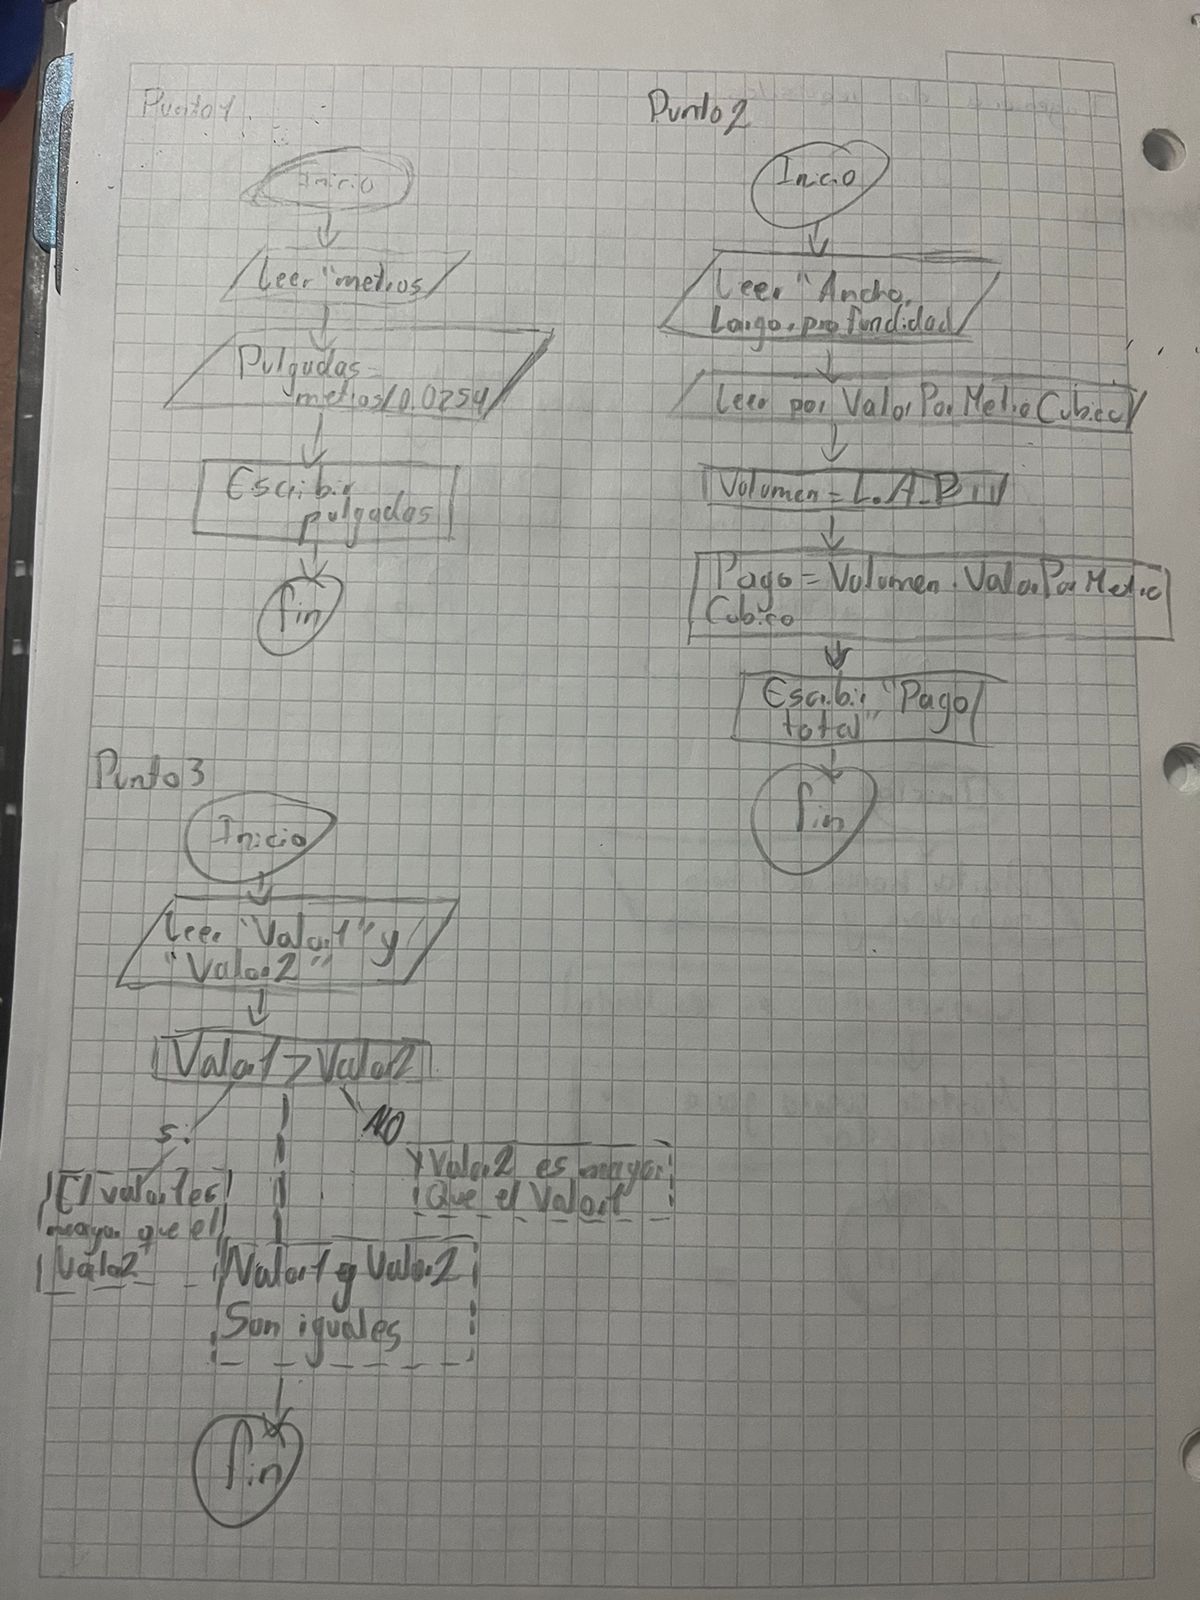 Punto 1
Inicio
Leer "metros
Pulgadas =
metros/0.0254
Escribir
pulgadas
fin
Punto 2
Inicio
Leer "Ancho,
Largo, profundidad
Leer por ValorPorMetroCubico
Volumen = L.A.P
Pago = Volumen . ValorPorMetro
Cubico
Escribir "Pago
total"
fin
Punto 3
Inicio
Leer "Valor1" y
"Valor2"
Valor1 > Valor2
Si
NO
El valor1 es
mayor que el
Valor2
Valor2 es mayor
Que el Valor1
Valor1 y Valor2
Son iguales
fin